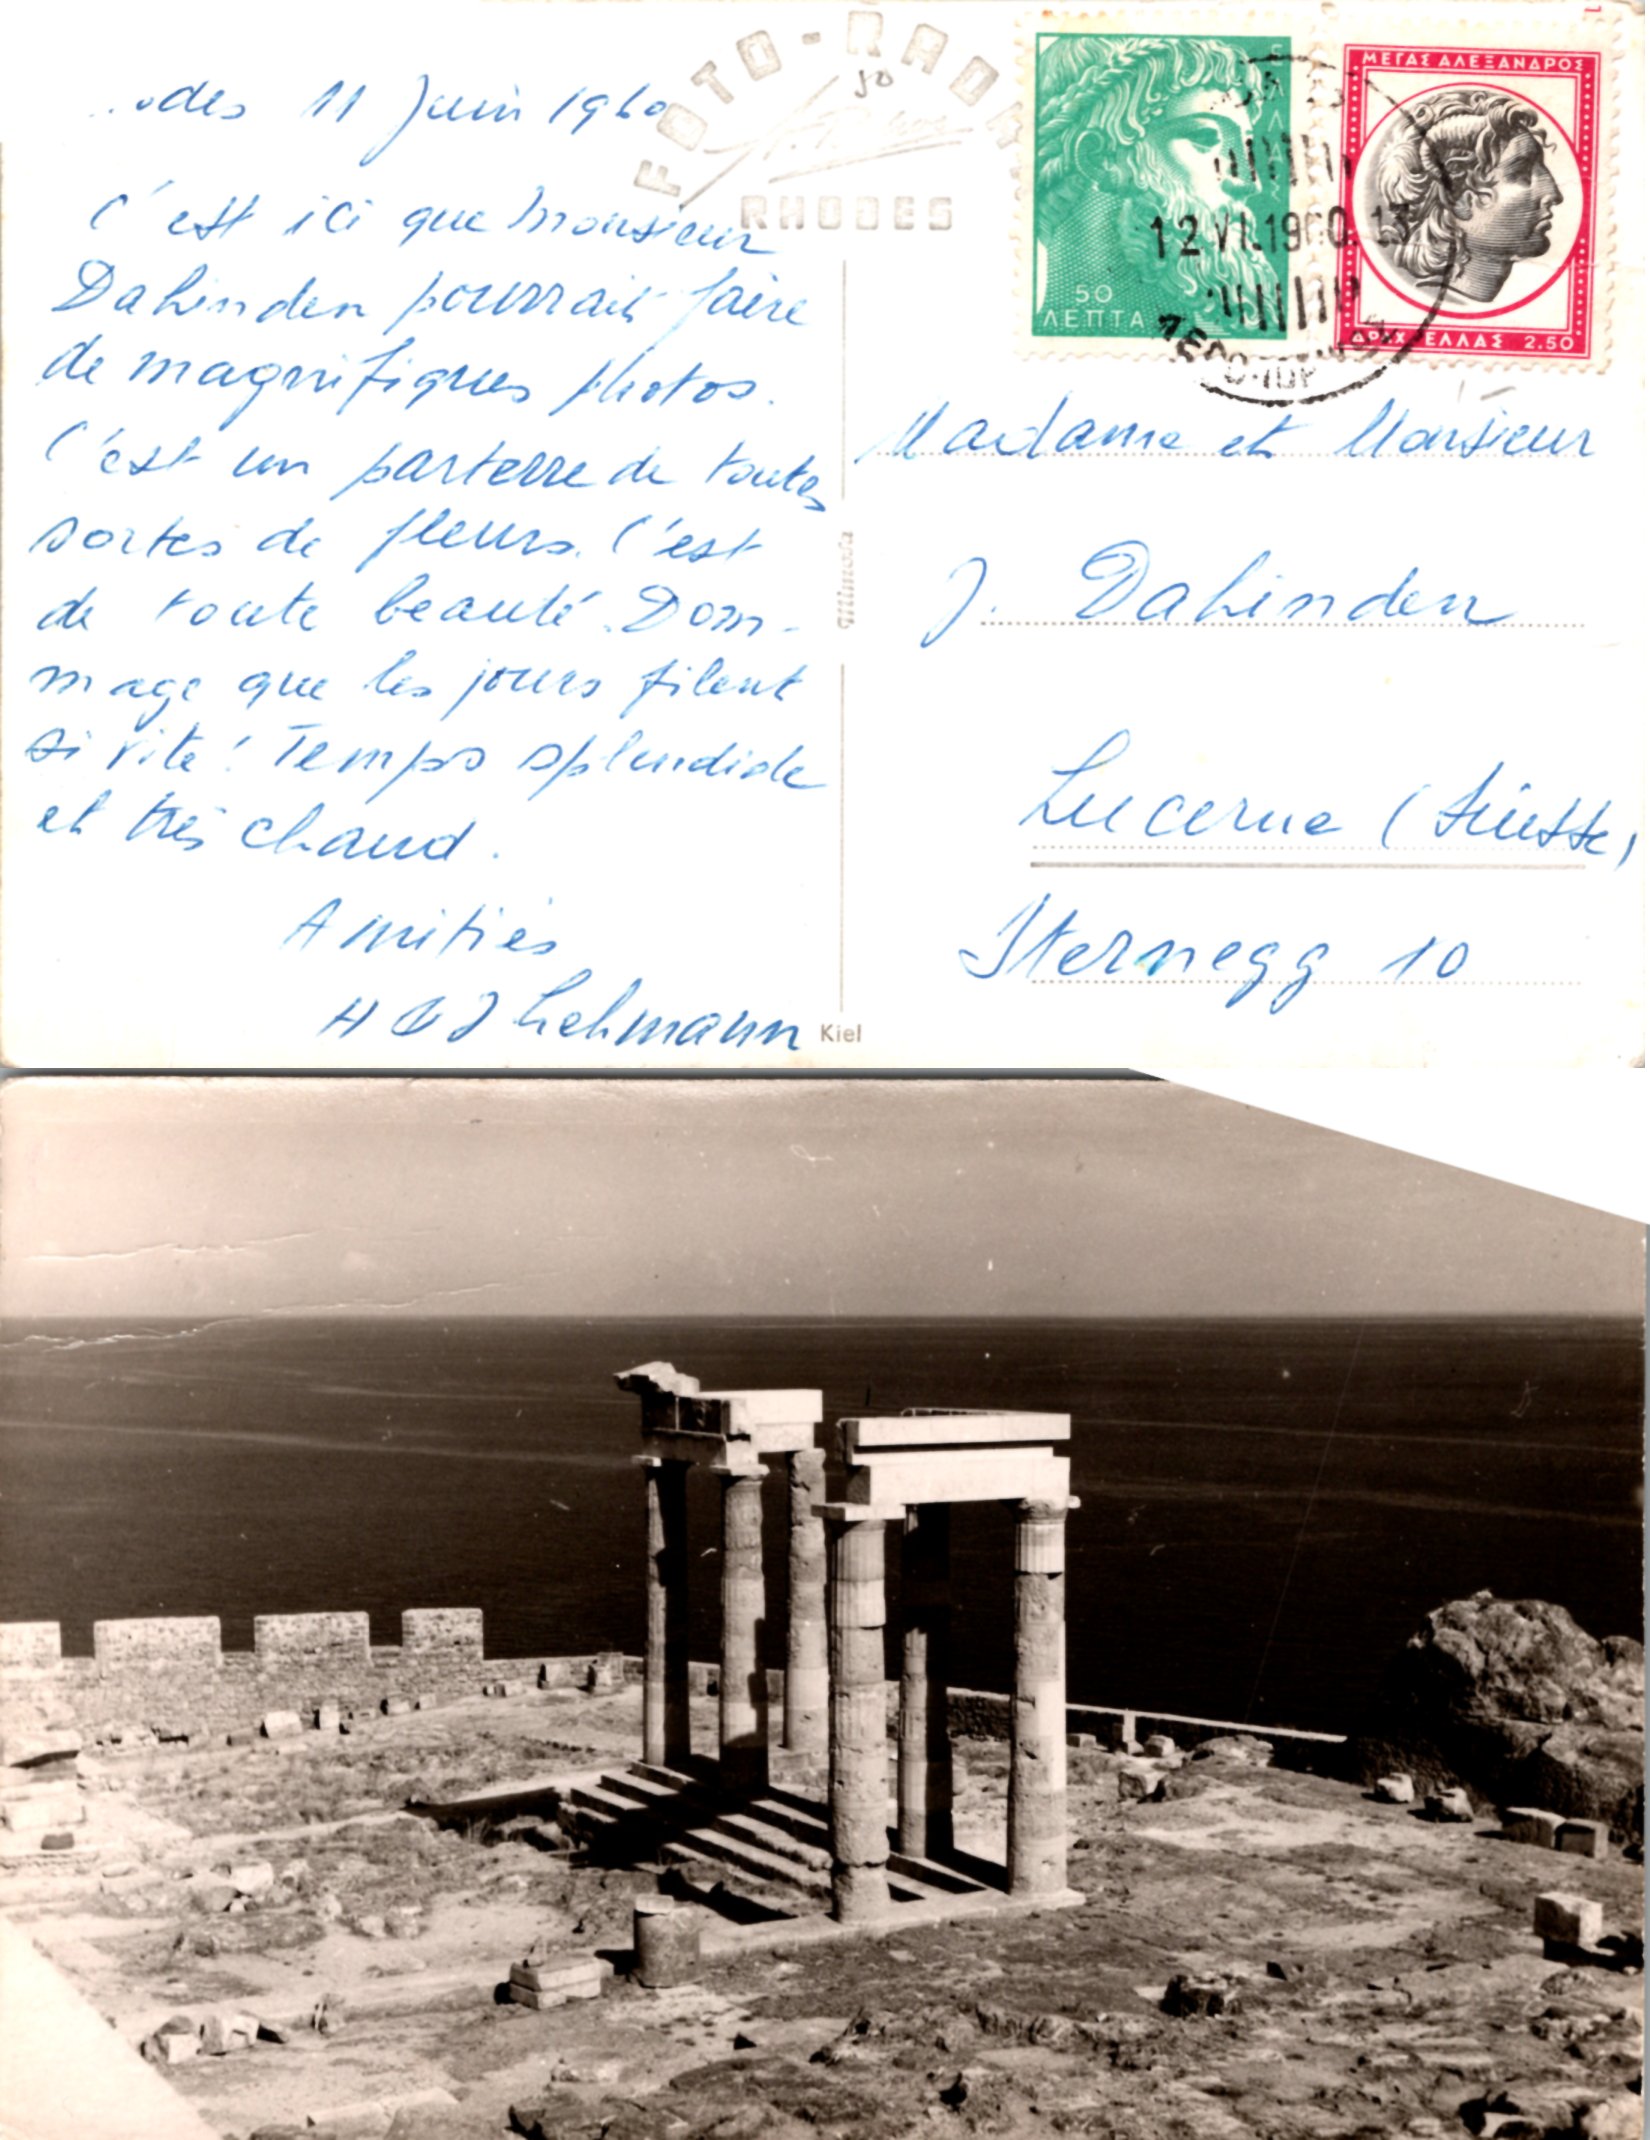 11 Juin 1960
C'est ici que Monsieur
Dahinden pourrait faire
de magnifiques photos.
C'est un parterre de toutes
sortes de fleurs. C'est
de toute beauté. Dom-
mage que les jours filent
si vite! Temps splendide
et très chaud.
Amitiés
H & J Lehmann
FOTO-RADA
50
RHODES
Mimosa
Kiel
ΕΛΛΑΣ
50
ΛΕΠΤΑ
ΜΕΓΑΣ ΑΛΕΞΑΝΔΡΟΣ
ΔΡΑΧ ΕΛΛΑΣ 2.50
12 VI.1960.13
Madame et Monsieur
J. Dahinden
Lucerne (Suisse)
Sternegg 10